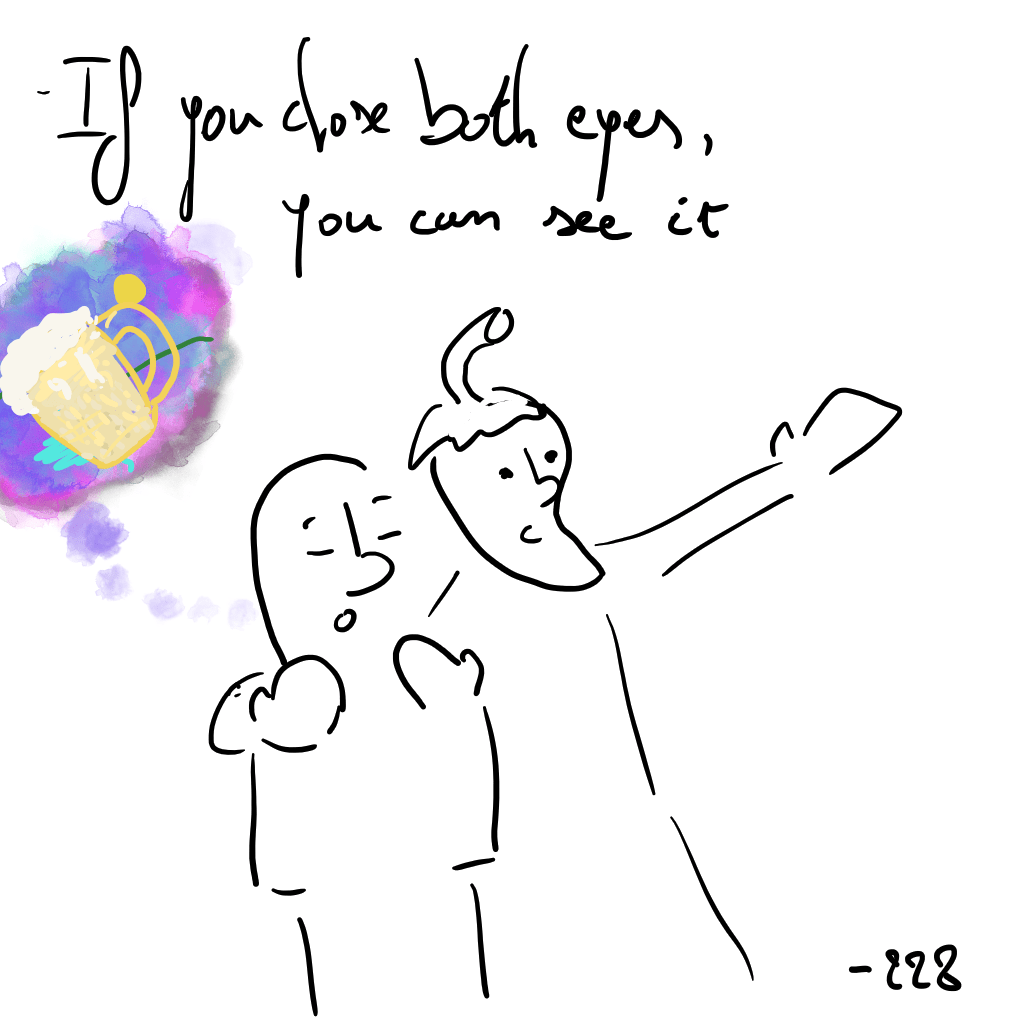 - If you close both eyes,
you can see it
- 228